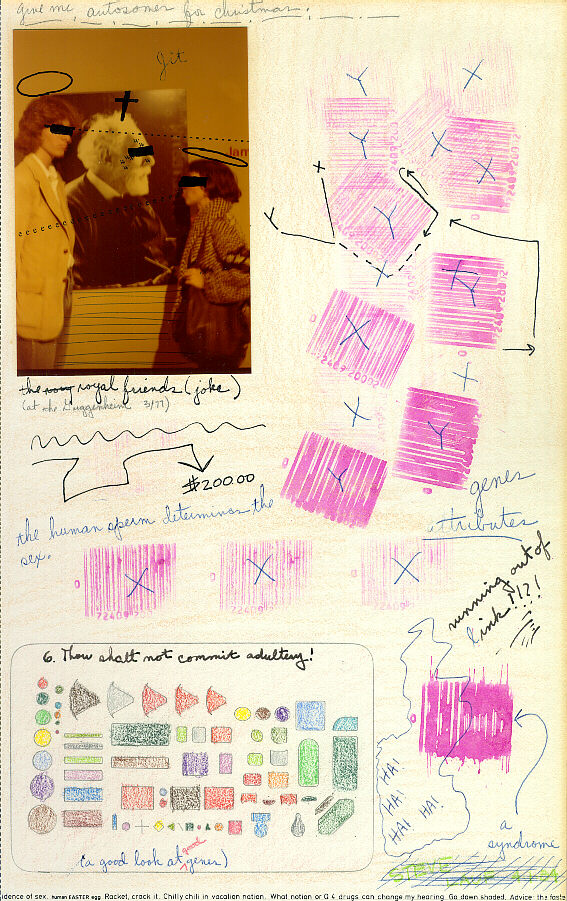 give me autosomes for christmas.
Jit
the royal friends (joke)
(at the Guggenheim 3/77)
$200.00
the human sperm determines the
sex.
genes
attributes
Y
X
Y
X
X
Y
X
Y
X
X
X
X
Y
X
Y
X
X
X
72409
72409
running out of
ink!!?!
6. Thou shalt not commit adultery!
(a good look at good genes)
HA!
HA!
HA!
HA!
a
syndrome
idence of sex. human EASTER egg Racket, crack it. Chilly chili in vacation notion. What notion or G 4 drugs can change my hearing. Go down shaded. Advice: the faste